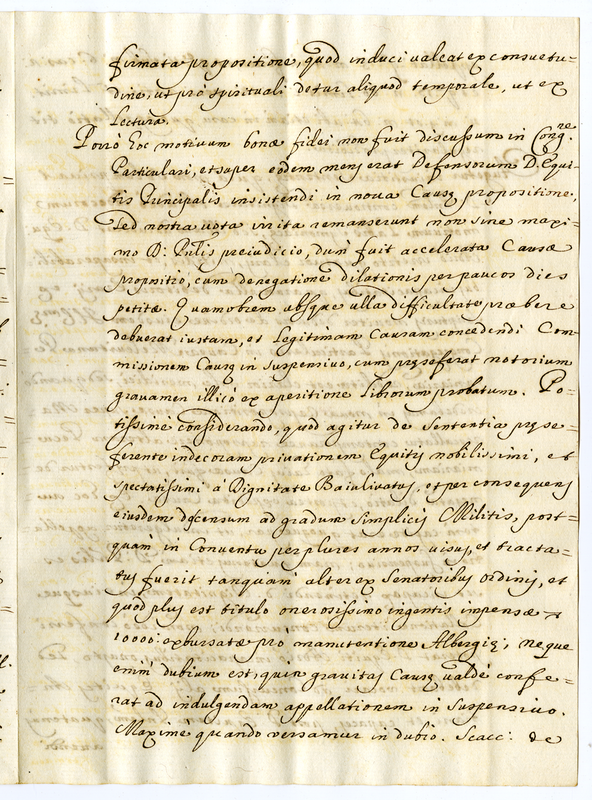 firmata propositione, quod induci valeat ex consuetu=
dine, ut pro spirituali detur aliquod temporale, ut ex
Lectura.
Porrò hoc motivum bonæ fidei non fuit discussum in Cong.ne
Particulari, et super eodem mens erat Defensorum D. Equi=
tis Principalis insistendi in nova Causę propositione,
Sed nostra vota irrita remanserunt non sine maxi=
mo D: Pnlis preiudicio, dum fuit accelerata Causæ
propositio, cum denegatione dilationis per paucos dies
petitæ. Quamobrem absque ulla difficultate præbere
debuerat iustam, et legitimam Causam concedendi Com=
missionem Causę in suspensivo, cum pręseferat notorium
gravamen illicò ex aperitione librorum probatum. Po=
tissimè considerando, quod agitur de Sententia pręse=
ferente indecoram privationem Equitis nobilissimi, et
spectatissimi à Dignitate Baiulivatus, et per consequens
eiusdem descensum ad gradum simplicis Militis, post=
quam in Conventu per plures annos visus, et tracta=
tus fuerit tanquam alter ex Senatoribus ordinis, et
quod plus est titulo onerosissimo ingentis impensæ
10000: exbursatæ pro manutentione Albergię; neque
enim dubium est, quin gravitas Causę valdè confe=
rat ad indulgendam appellationem in suspensivo.
Maximè quando versamur in dubio. Scacc: de